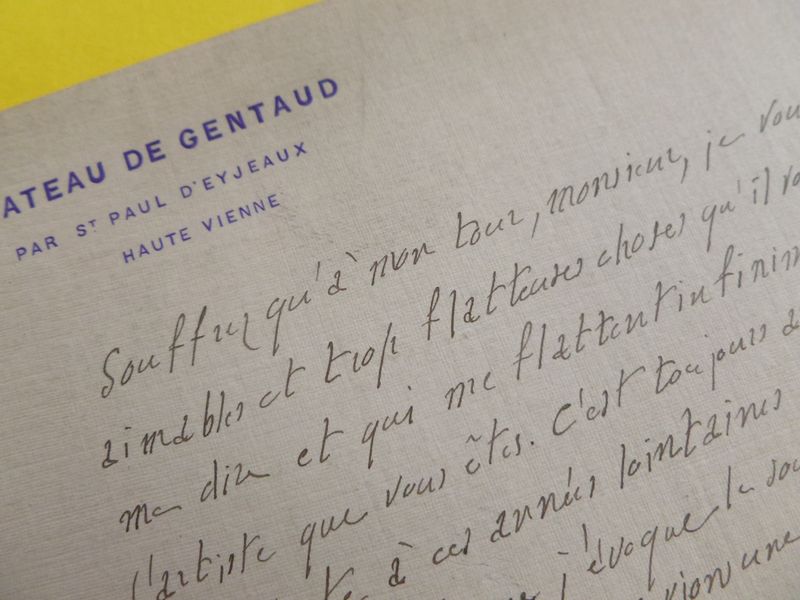 ATEAU DE GENTAUD
PAR ST PAUL D'EYJEAUX
HAUTE VIENNE
Souffrez qu'à mon tour, monsieur, je vou
aimables et trop flatteuses choses qu'il vo
me dire et qui me flattent infinim
l'artiste que vous êtes. C'est toujours a
à ces années lointaines
j'évoque le sou
une